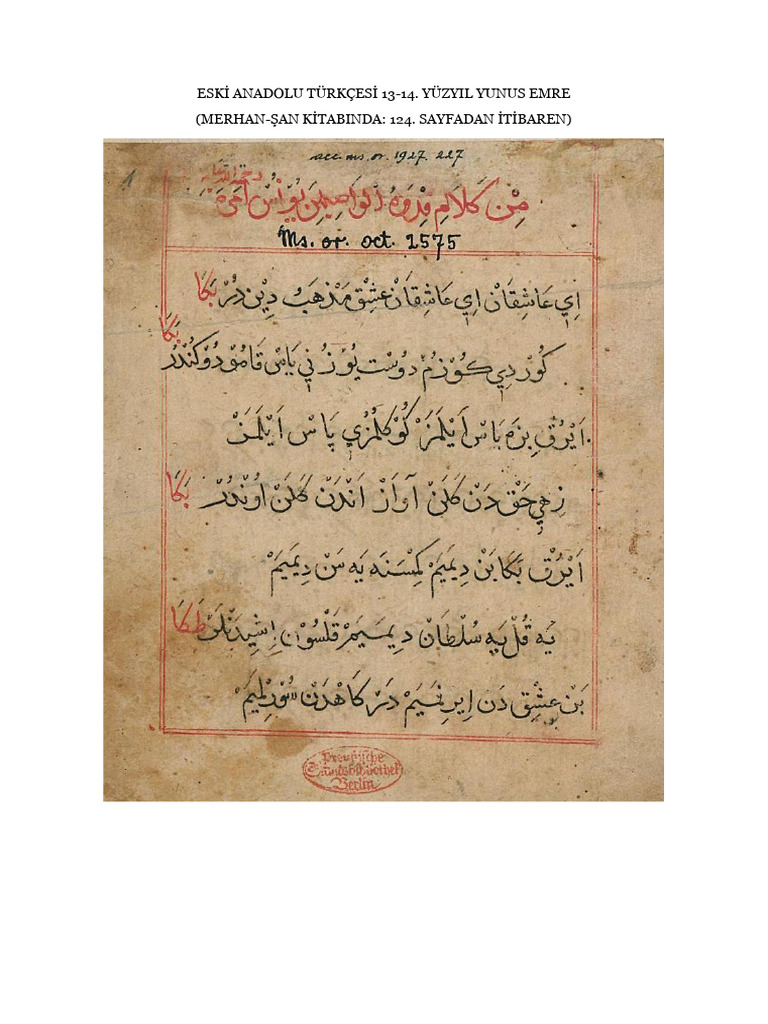 ESKİ ANADOLU TÜRKÇESİ 13-14. YÜZYIL YUNUS EMRE
(MERHAN-ŞAN KİTABINDA: 124. SAYFADAN İTİBAREN)
acc. ms. or. 1927. 227
1
مِنْ كَلَامِ قِدْوَةُ الْوَاصِلِينَ يُونُسْ اَمْرَه
Ms. or. oct. 2575
اِي عَاشِقَانْ اِي عَاشِقَانْ عِشْق مَذْهَبُ دِيْن دُرْ بَكَا
كُورْدِي كُوزُمْ دُوسْت يُوزُنِي يَاسْ قَامُو دُوكُنْدُرْ بَكَا
اَيْرُقْ بِزَه يَاسْ اَيْلَمَزْ كُوكُلُمُزِي پَاسْ اَيْلَمَزْ
زِهِي حَقْ دَنْ كَلَنْ آوَازْ اَنْدَنْ كَلَنْ اُونْدُرْ بَكَا
اَيْرُقْ بَكَا بَنْ دِيمَيَمْ كِمْسَنَه يَه سَنْ دِيمَيَمْ
يَه قُلْ يَه سُلْطَانْ دِيمَيَمْ قَلْسُونْ اِشِيدَنْلَرْ طَكَا
بَنْ عِشْق دَن اَيرِلْمَيَمْ دَرْكَاهْدَنْ سُورُلْمَيَمْ
Preußische
Staatsbibliothek
Berlin